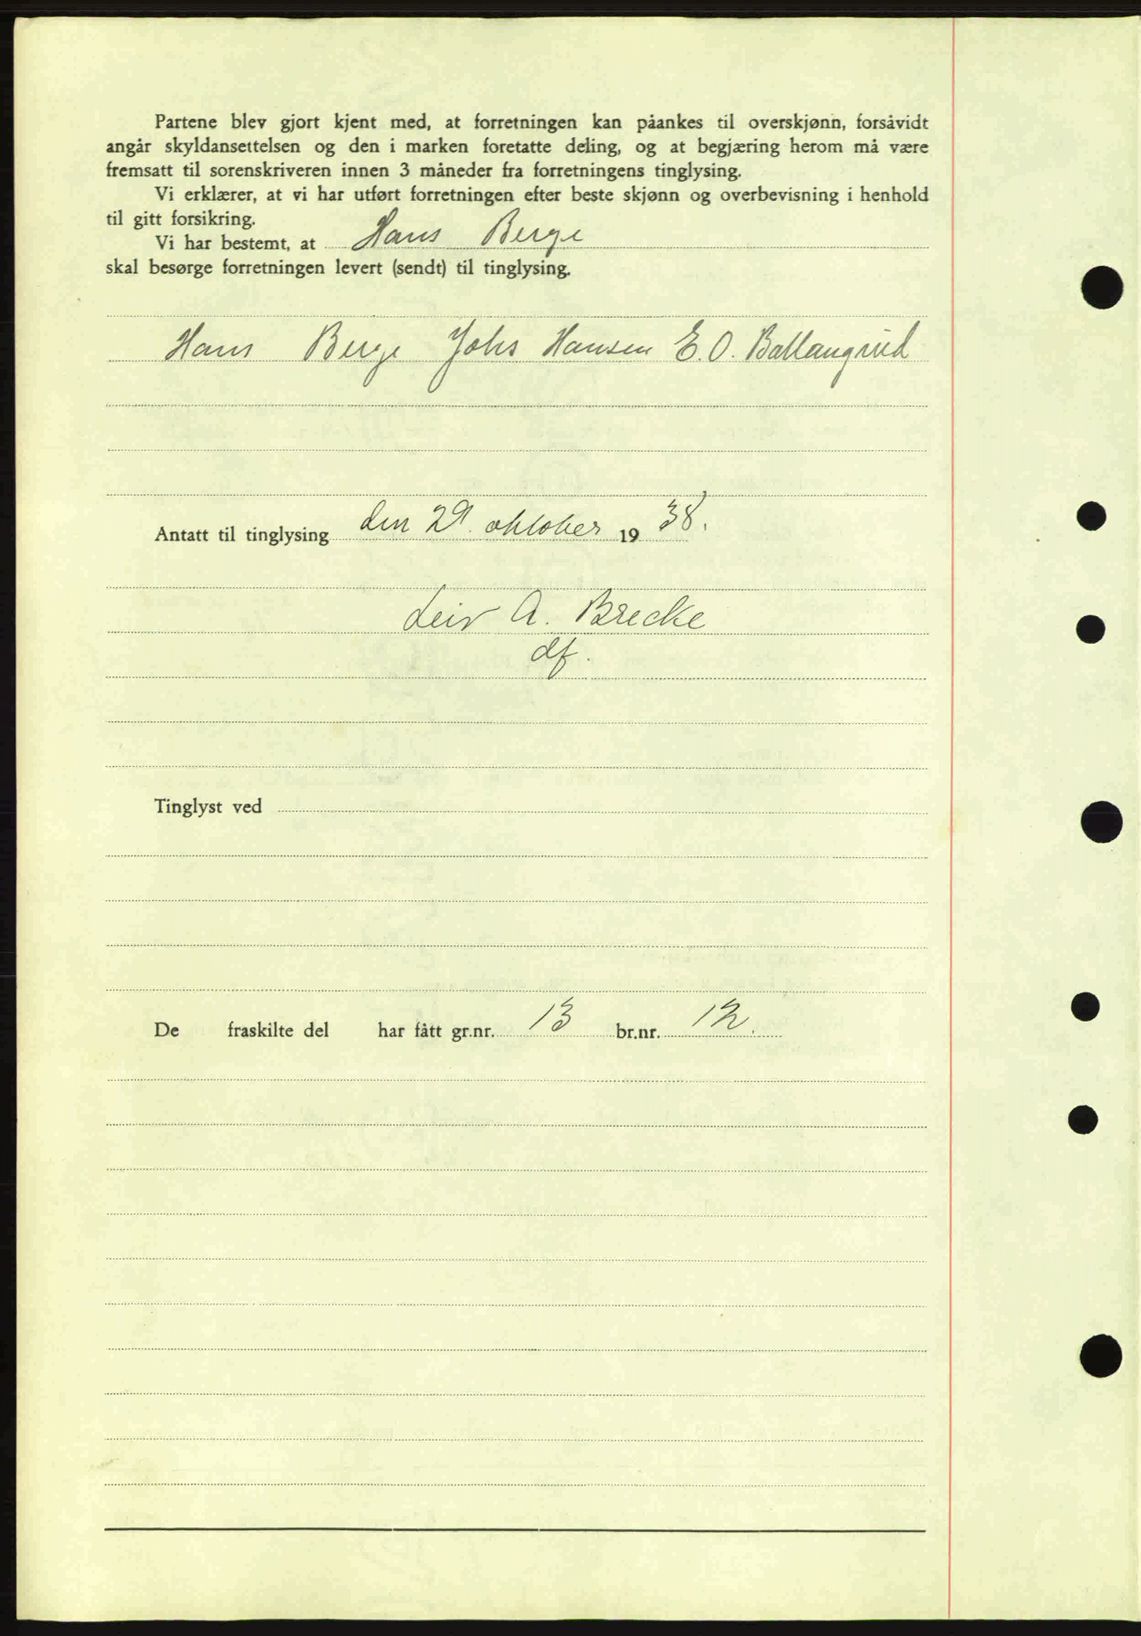 Partene blev gjort kjent med, at forretningen kan påankes til overskjønn, forsåvidt
angår skyldansettelsen og den i marken foretatte deling, og at begjæring herom må være
fremsatt til sorenskriveren innen 3 måneder fra forretningens tinglysing.
Vi erklærer, at vi har utført forretningen efter beste skjønn og overbevisning i henhold
til gitt forsikring.
Vi har bestemt, at Hans Berge
skal besørge forretningen levert (sendt) til tinglysing.
Hans Berge Johs Hansen E. O. Ballangrud
Antatt til tinglysing den 29. oktober 19 38.
Leiv A. Brecke
df.
Tinglyst ved
De fraskilte del har fått gr.nr. 13 br.nr. 12.